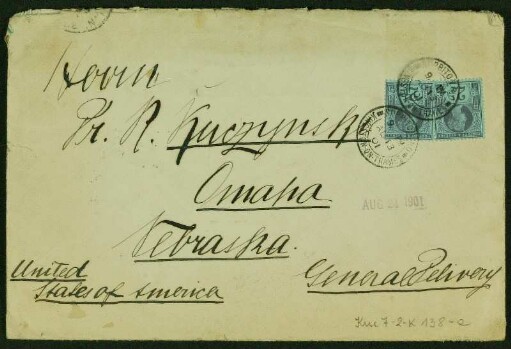 Herrn
Dr. R. Kuczynski
Omaha
Nebraska.
United
States of America
General Delivery
AUG 24 1901
2½ 2½